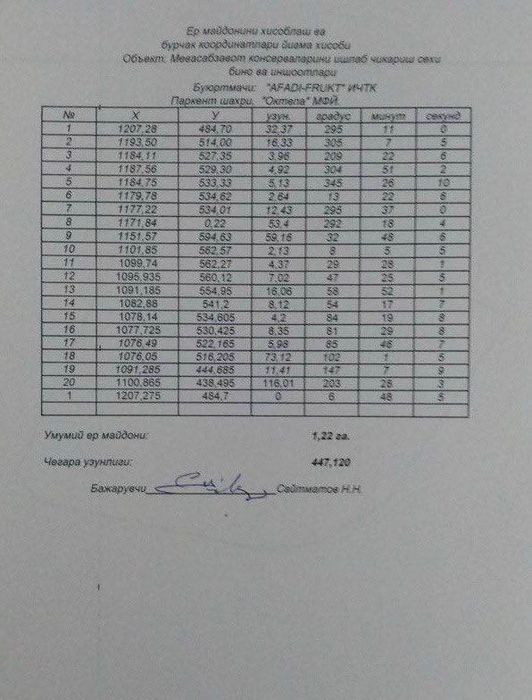 Ер майдонини хисоблаш ва
бурчак координатлари йигма хисоби
Объект: Мевасабзавот консерваларини ишлаб чикариш сехи
бино ва иншоотлари
Буюртмачи: "AFADI-FRUKT" ИЧТК
Паркент шахри, "Октепа" МФЙ.
№ X У узун. градус минут секунд
1 1207,28 484,70 32,37 295 11 0
2 1193,50 514,00 16,33 305 7 5
3 1184,11 527,35 3,96 209 22 6
4 1187,56 529,30 4,92 304 51 2
5 1184,75 533,33 5,13 345 26 10
6 1179,78 534,62 2,64 13 22 6
7 1177,22 534,01 12,43 295 37 0
8 1171,84 0,22 53,4 292 18 4
9 1151,57 594,63 59,16 32 48 6
10 1101,85 562,57 2,13 8 5 5
11 1099,74 562,27 4,37 29 28 1
12 1095,935 560,12 7,02 47 25 5
13 1091,185 554,95 16,06 58 52 1
14 1082,88 541,2 8,12 54 17 7
15 1078,14 534,605 4,2 84 19 8
16 1077,725 530,425 8,35 81 29 8
17 1076,49 522,165 5,98 85 46 7
18 1076,05 516,205 73,12 102 1 5
19 1091,285 444,685 11,41 147 7 9
20 1100,865 438,495 116,01 203 28 3
1 1207,275 484,7 0 6 48 5
Умумий ер майдони: 1,22 га.
Чегара узунлиги: 447,120
Бажарувчи Сайтматов Н.Н.